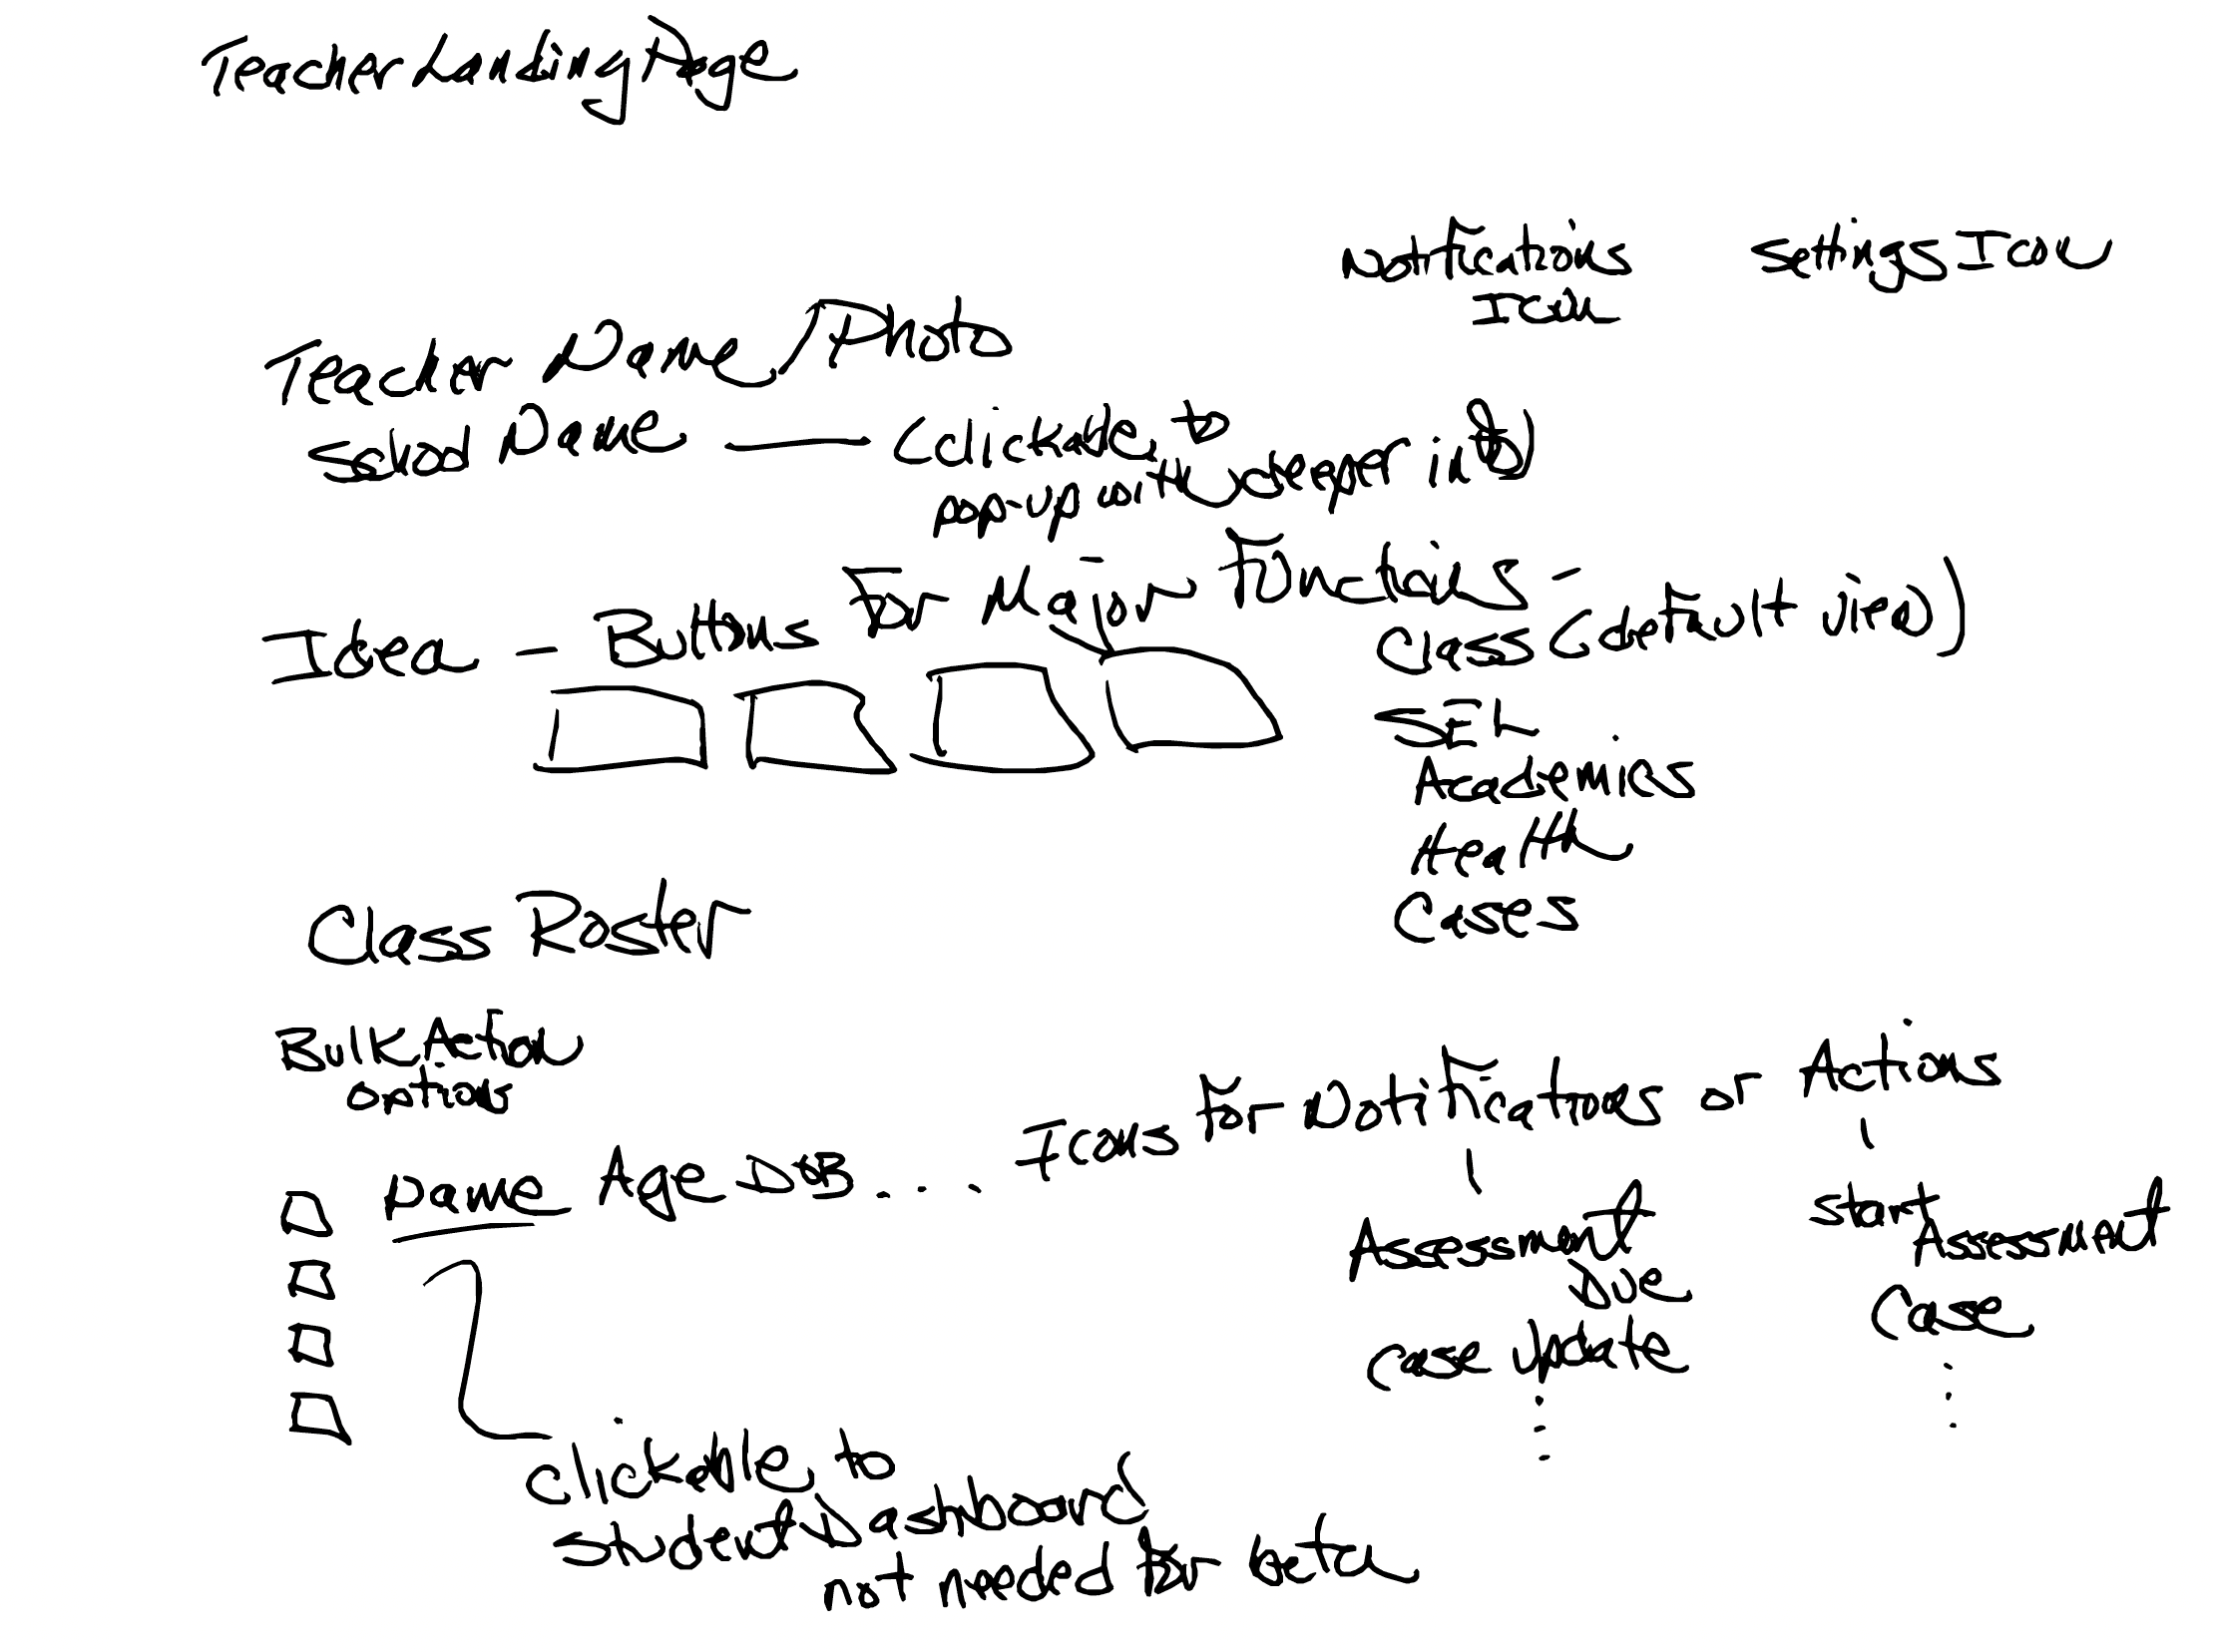 Teacher Landing Page
Notifications Icon
Settings Icon
Teacher Name/Photo
School Name — (clickable to
pop-up with deeper info)
Idea — Buttons For Major Functions -
Class (default view)
SEL
Academics
Health
Cases
Class Roster
Bulk Action
options
Name Age DOB... Icons for Notifications or Actions
Assessment
Due
Case Update
Start
Assessment
Case
clickable to
Student Dashboard
not needed for beta